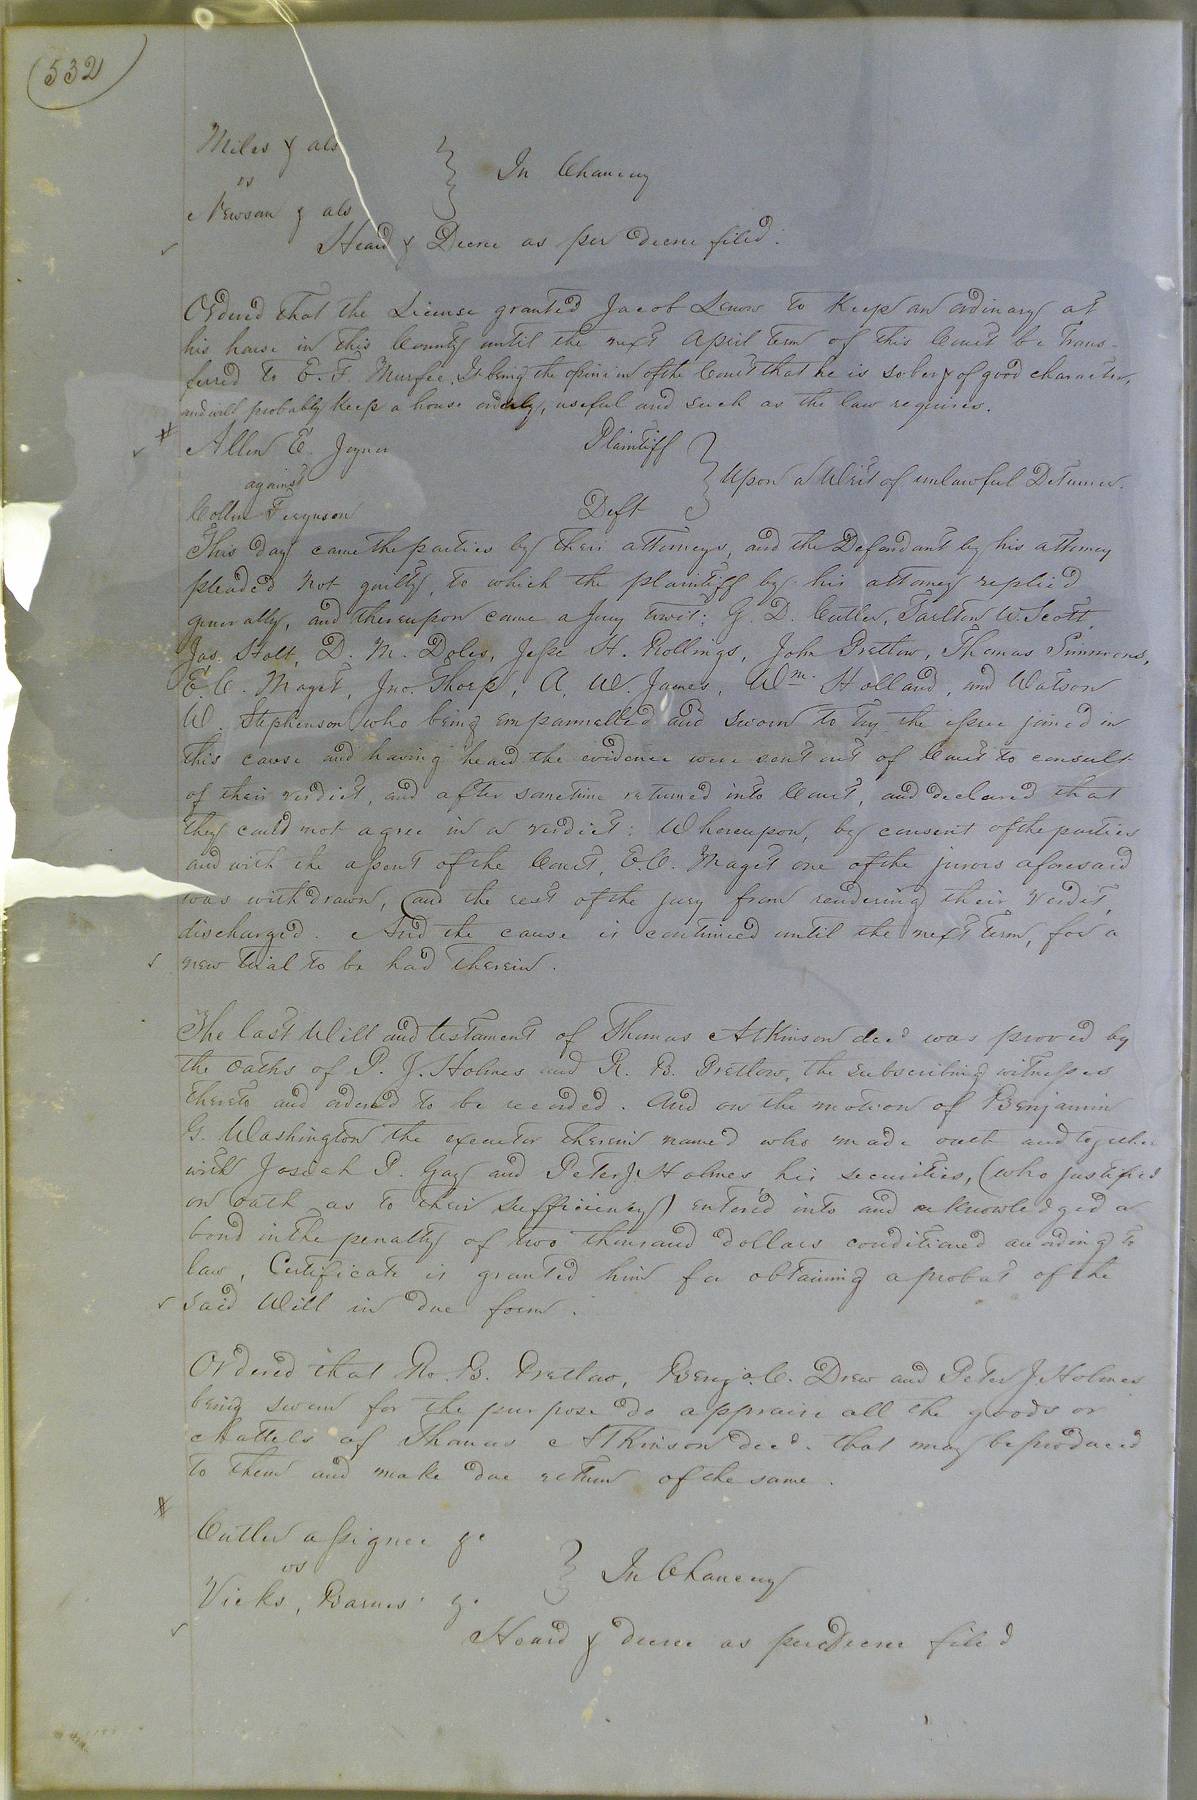 (532)
Miles & als
vs
Newsom & als } In Chancery
Heard & Decree as per decree filed.
Ordered that the License granted Jacob Lenow to keep an ordinary at
his house in this County until the next April term of this Court be trans-
ferred to E. F. Murfee, It being the opinion of the Court that he is sober & of good character,
and will probably keep a house orderly, useful and such as the law requires.
Allen E. Joyner Plaintiff
against } Upon a Writ of unlawful Detainer.
Collin Ferguson Deft
This day came the parties by their attorneys, and the Defendant by his attorney
pleaded not guilty, to which the plaintiff by his attorney replied
generally, and thereupon came a Jury towit: G. D. Cutler, Tarlton W. Scott,
Jas. Stott, D. M. Doles, Jesse H. Rollings, John Pretlow, Thomas Simmons,
E. C. Maget, Jno. Thorp, A. W. James, Wm. Holland, and Watson
W. Stephenson who being empannelled and sworn to try the issue joined in
this cause and having heard the evidence were sent out of Court to consult
of their verdict, and after sometime returned into Court, and declared that
they could not agree in a verdict: Whereupon, by consent of the parties
and with the assent of the Court, E. C. Maget one of the jurors aforesaid
was withdrawn, and the rest of the jury from rendering their verdict,
discharged. And the cause is continued until the next term, for a
new trial to be had therein.
The last Will and testament of Thomas Atkinson decd was proved by
the oaths of P. J. Holmes and R. B. Pretlow, the subscribing witnesses
thereto and ordered to be recorded. And on the motion of Benjamin
G. Washington the executor therein named who made oath and together
with Josiah P. Gay and Peter J Holmes his securities, (who justified
on oath as to their sufficiency) entered into and acknowledged a
bond in the penalty of two thousand dollars conditioned according to
law, Certificate is granted him for obtaining a probat of the
said Will in due form.
Ordered that Ro. B. Pretlow, Benja. C. Drew and Peter J Holmes
being sworn for the purpose do appraise all the goods or
chattels of Thomas Atkinson decd. that may be produced
to them and make due return of the same.
Cutler assignee &c
vs } In Chancery
Vicks, Barnes &c
Heard & decree as per Decree filed